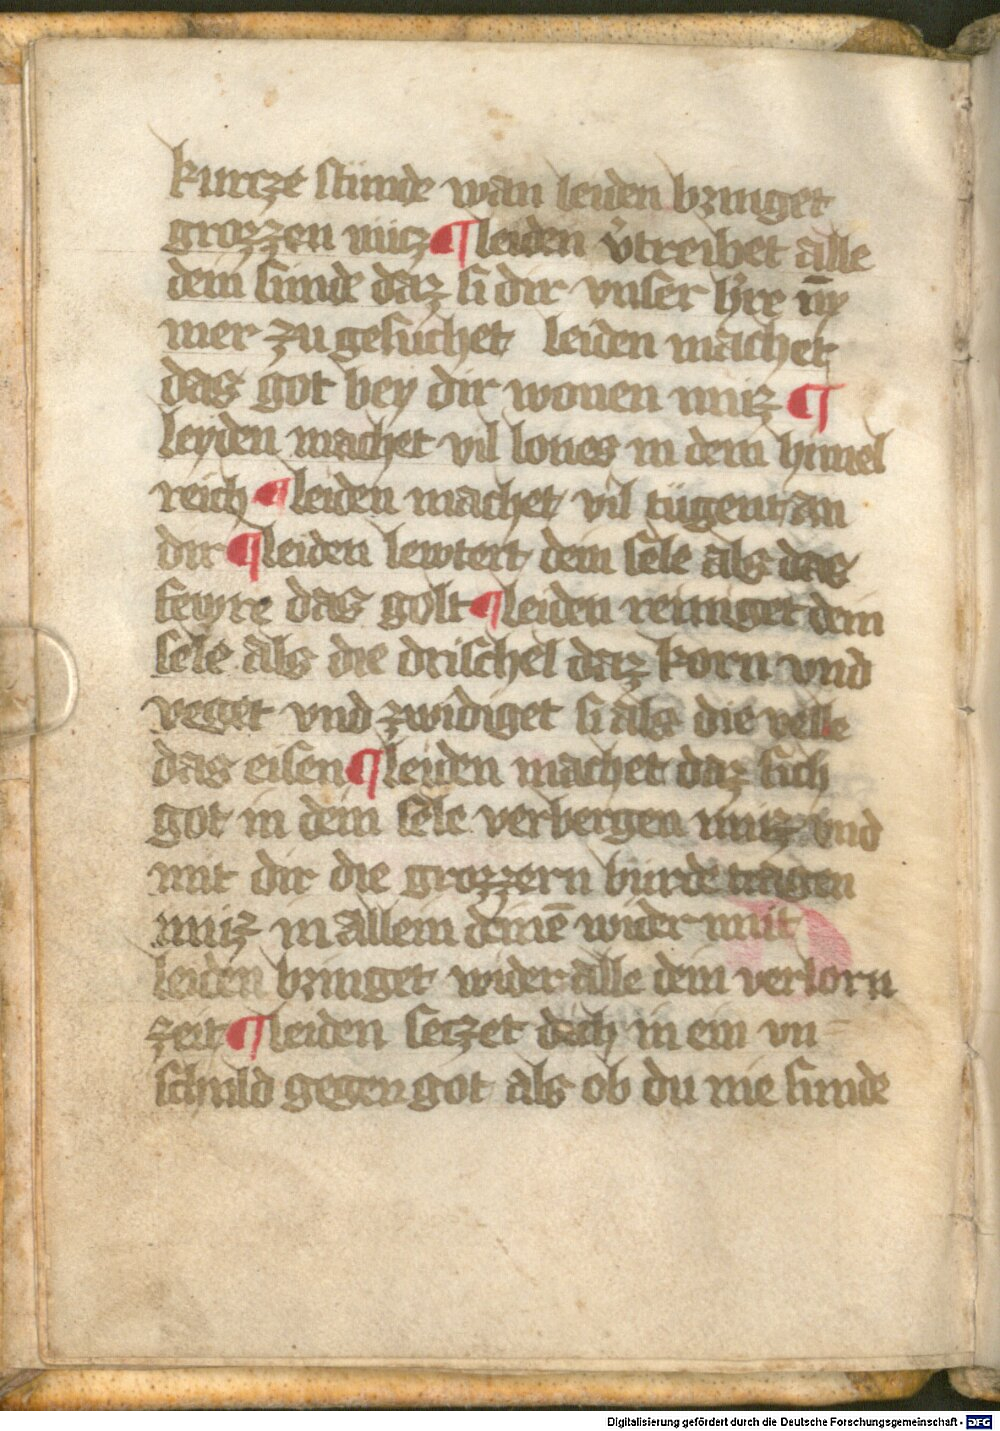 kurcze stunde wan leiden bringet
grozzen nucz ¶ leiden v̓treibet alle
dein sunde daz si dir vnser h̓re im̄
mer zu gesuchet leiden machet
das got bey dir wonen muz ¶
leyden machet vil lones in dem himel
reich ¶ leiden machet vil tugent an
dir ¶ leiden lewtert dein sele als das
fewre das golt ¶ leiden reiniget dein
sele als die drischel daz korn vnd
veget vnd zwidiget si als die
das eisen ¶ leiden machet daz sich
got in dein sele verbergen muz vnd
mit dir die grozzern burde tragen
muz in allem deinē wider mut
leiden bringet wider alle dein verlorn
zeit ¶ leiden seczet dich in ein vn=
schuld gegen got als ob du nie sunde
Digitalisierung gefördert durch die Deutsche Forschungsgemeinschaft - DFG